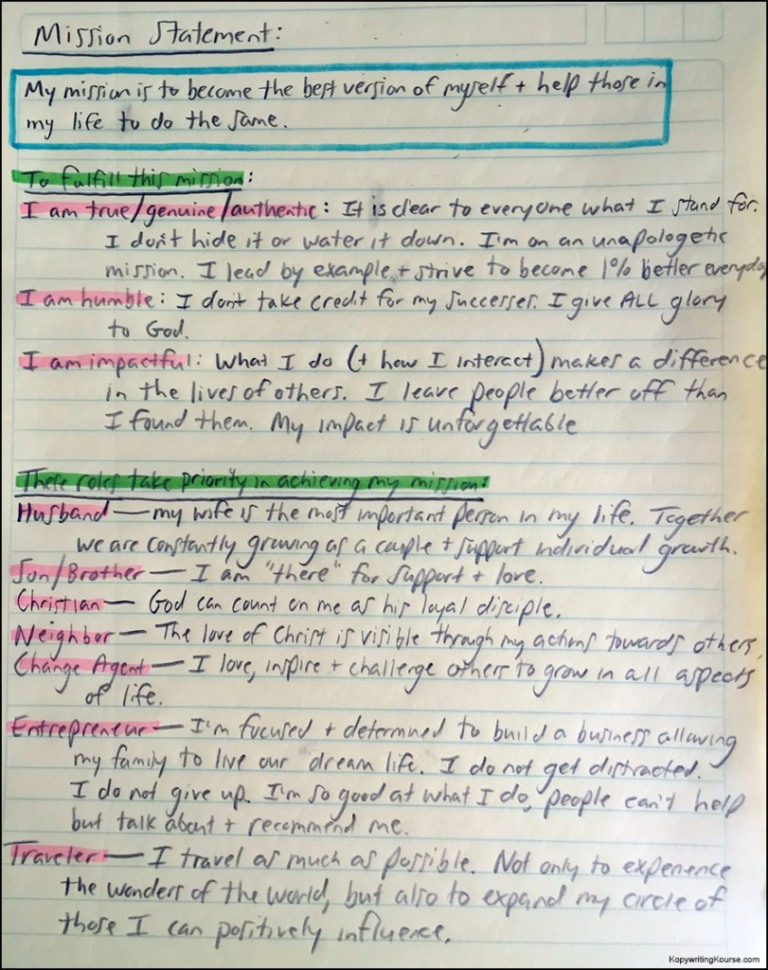 Mission Statement:
My mission is to become the best version of myself + help those in
my life to do the same.
To fulfill this mission:
I am true/genuine/authentic: It is clear to everyone what I stand for.
I don't hide it or water it down. I'm on an unapologetic
mission. I lead by example + strive to become 1% better everyday
I am humble: I don't take credit for my successes. I give ALL glory
to God.
I am impactful: What I do (+ how I interact) makes a difference
in the lives of others. I leave people better off than
I found them. My impact is unforgettable
These roles take priority in achieving my mission:
Husband — my wife is the most important person in my life. Together
we are constantly growing as a couple + support individual growth.
Son/Brother — I am "there" for support + love.
Christian — God can count on me as his loyal disciple.
Neighbor — The love of Christ is visible through my actions towards others.
Change Agent — I love, inspire + challenge others to grow in all aspects
of life.
Entrepreneur — I'm focused + determined to build a business allowing
my family to live our dream life. I do not get distracted.
I do not give up. I'm so good at what I do, people can't help
but talk about + recommend me.
Traveler — I travel as much as possible. Not only to experience
the wonders of the world, but also to expand my circle of
those I can positively influence.
KopywritingKourse.com